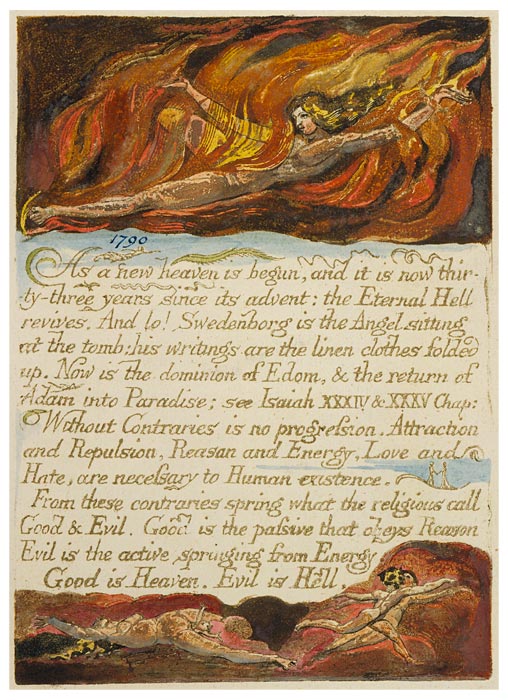 1790
As a new heaven is begun, and it is now thir-
ty-three years since its advent: the Eternal Hell
revives. And lo! Swedenborg is the Angel sitting
at the tomb: his writings are the linen clothes folded
up. Now is the dominion of Edom, & the return of
Adam into Paradise; see Isaiah XXXIV & XXXV Chap:
Without Contraries is no progreſsion. Attraction
and Repulsion, Reason and Energy, Love and
Hate, are neceſsary to Human existence.
From these contraries spring what the religious call
Good & Evil. Good is the paſsive that obeys Reason
Evil is the active springing from Energy
Good is Heaven. Evil is Hell.